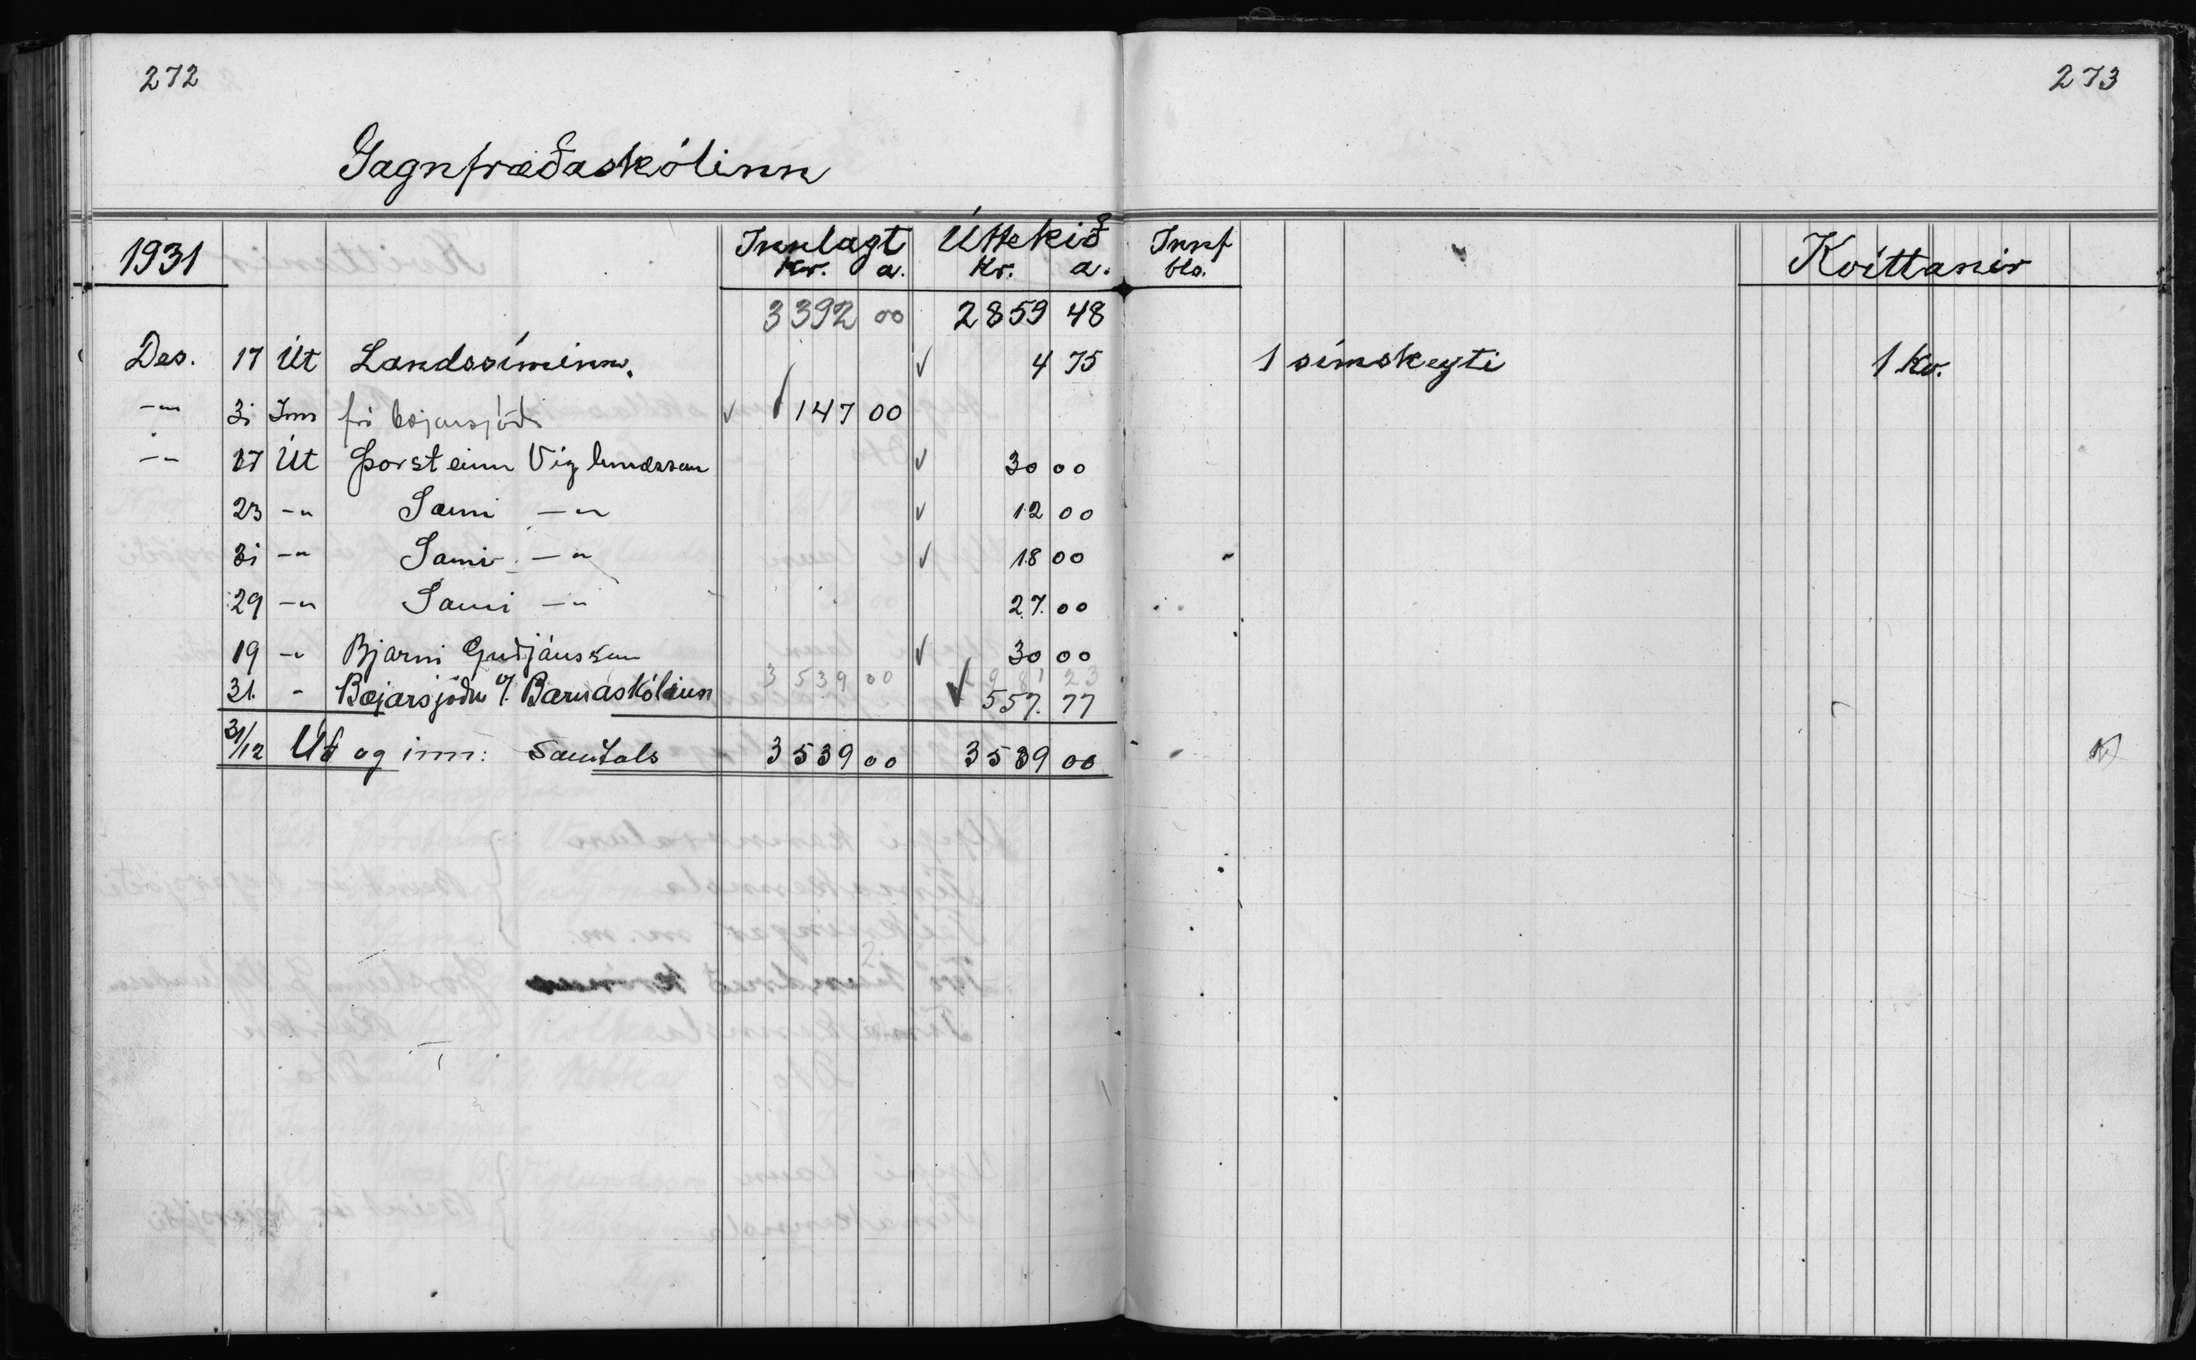 272
273
Gagnfræðaskólinn
1931 Innlagt Úttekið Innf Kvittanir
Kr. a. Kr. a. bls.
3392 00 2859 48
Des. 17 Út Landssíminn. √ 4 75 1 símskeyti 1 Kv.
–"– 31 Inn frá bæjarsjóði √ 147 00
–"– 17 Út Þorsteinn Víglundsson √ 30 00
23 –"– Sami –"– √ 12 00
31 –"– Sami –"– √ 18 00
29 –"– Sami –"– 27. 00
19 –"– Bjarni Guðjónsson √ 30 00
3539 00 2981 23
31. " Bæjarsjóður v/. Barnaskólinn √ 557. 77
31/12 Út og inn: Samtals 3539 00 3539 00